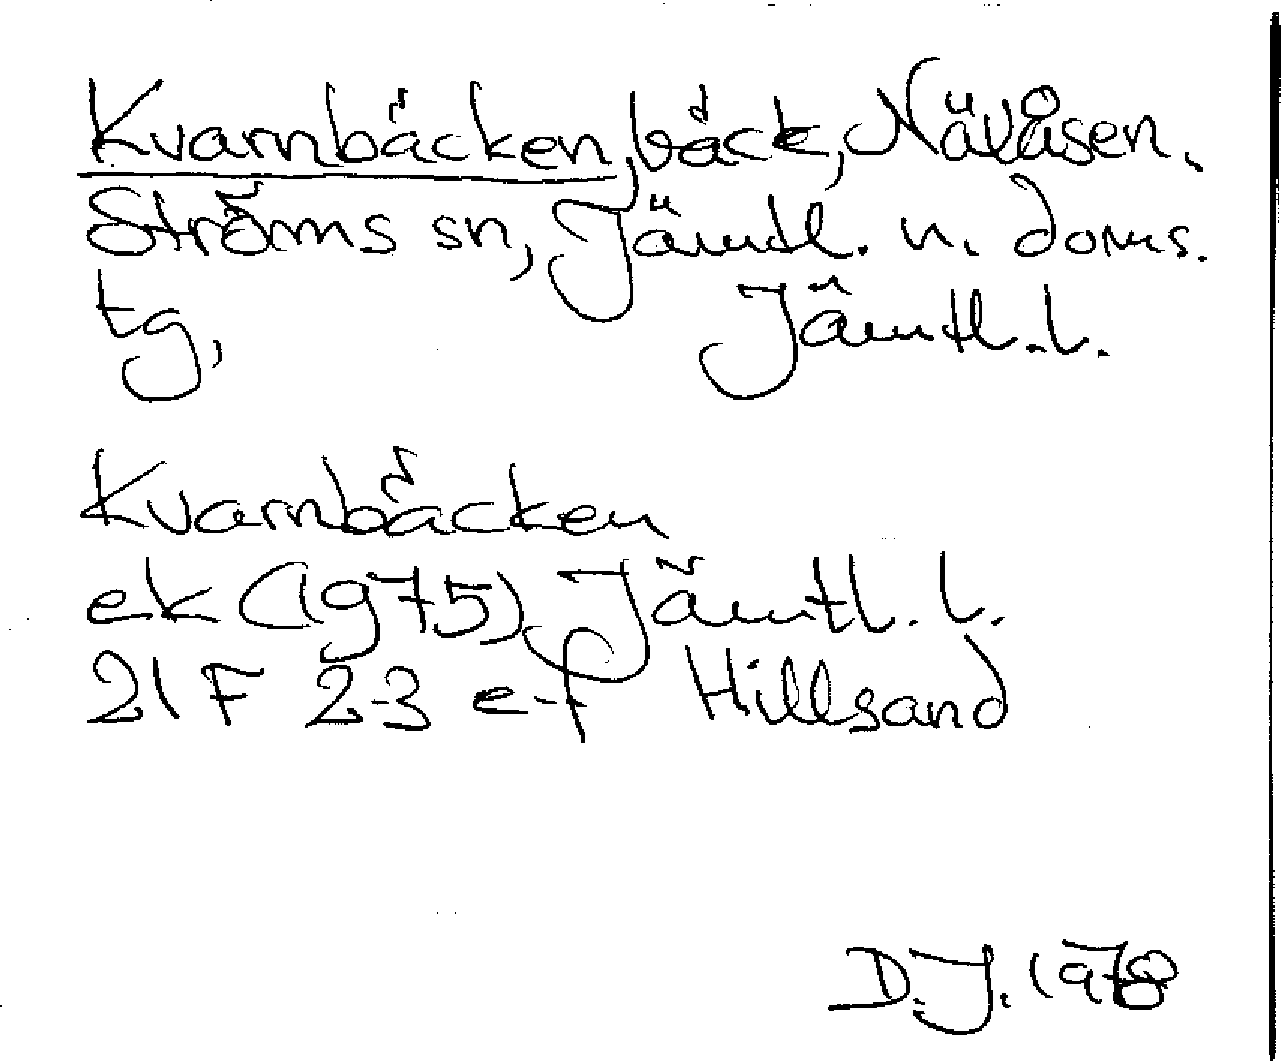 Kvarnbäcken, bäck, Nävåsen.
Ströms sn, Jämtl. n. doms.
tg, Jämtl. l.
Kvarnbäcken
ek (1975) Jämtl. l.
21 F 2-3 e-f Hillsand
D.J. 1978